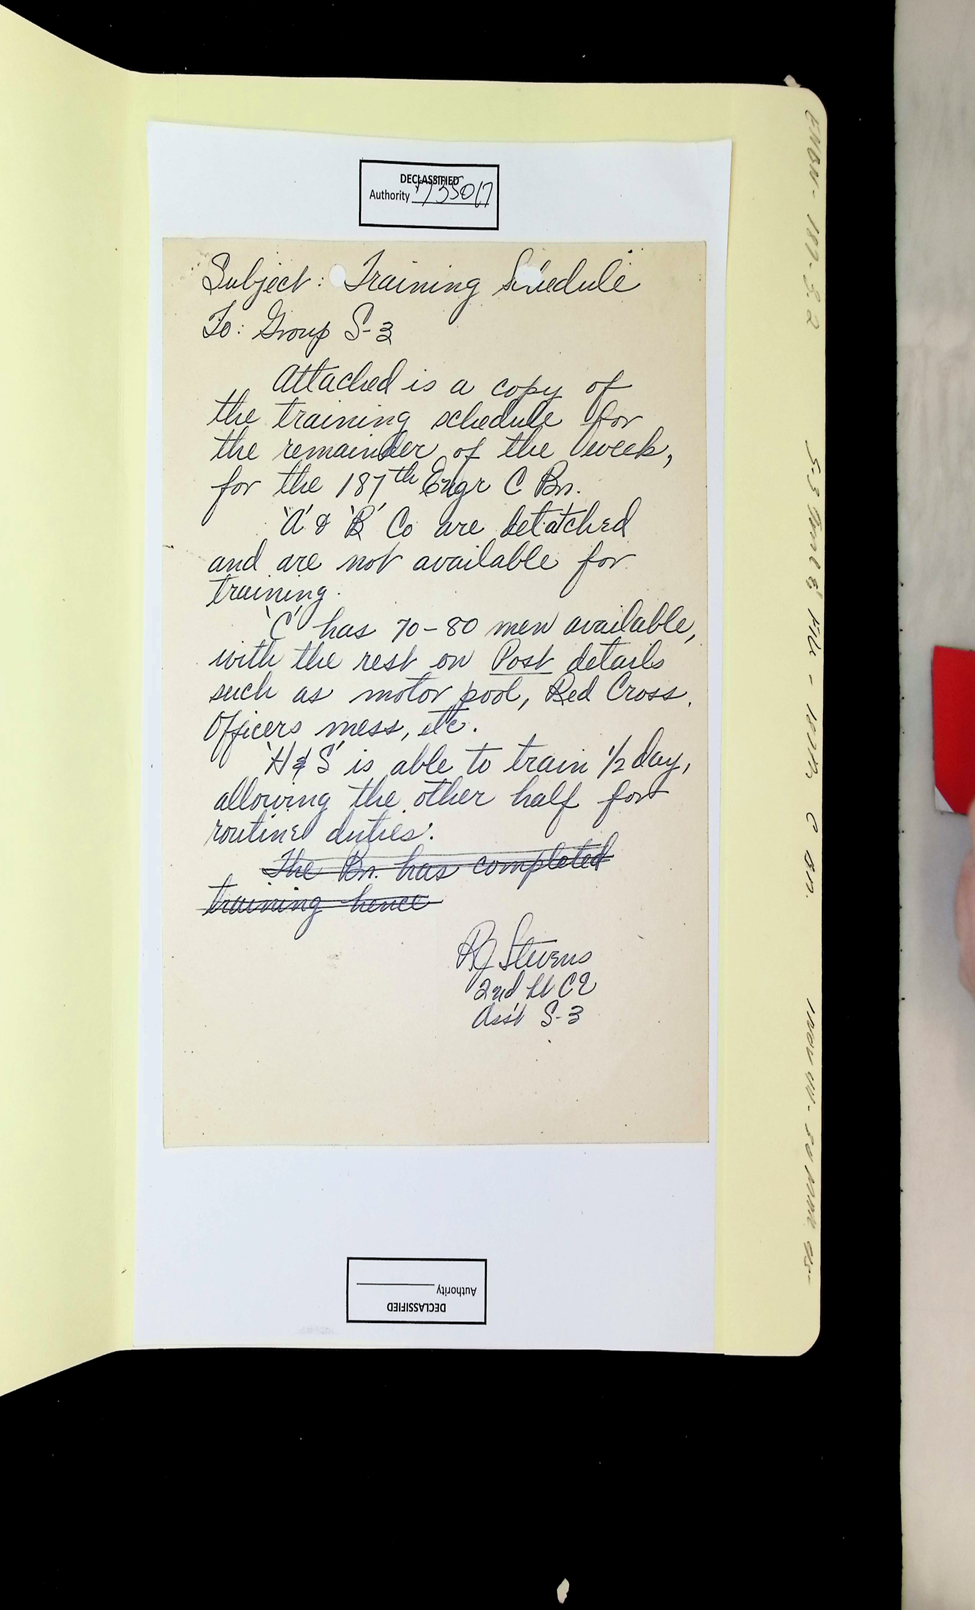 DECLASSIFIED
Authority 735017
Subject: Training Schedule
To: Group S-3
Attached is a copy of
the training schedule for
the remainder of the week,
for the 187th Engr C Bn.
'A' & 'B' Co are detatched
and are not available for
training.
'C' has 70-80 men available,
with the rest on Post details
such as motor pool, Red Cross,
Officers mess, etc.
'H & S' is able to train 1/2 day,
allowing the other half for
routine duties.
The Bn. has completed
training hence
RJ Stevens
2nd Lt CE
Ass't S-3
DECLASSIFIED
Authority
ENBN-187-3.2
S-3 File - 187th C Bn.